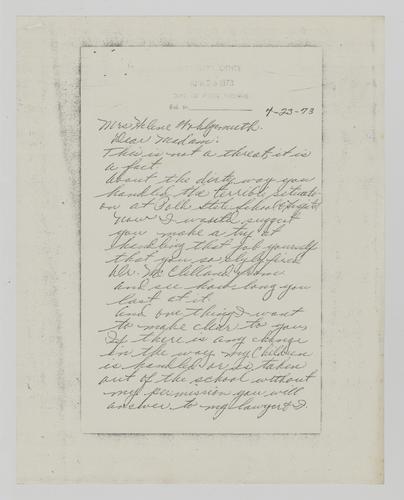 4-23-73
Mrs Helene Wohlgemuth.
Dear Madam:
This is not a threat, it is
a fact
about the dirty way you
handled the terrible situati-
on at Polk State School & Hospital
Now I would suggest
you make a try at
handling that job yourself
that you so slyly fired
Dr. Mc Clelland from
and see how long you
last at it.
And one thing I want
to make clear to you,
If there is any change
in the way my Children
is handled or is taken
out of the school without
my permission you will
answer to my lawyer & I.